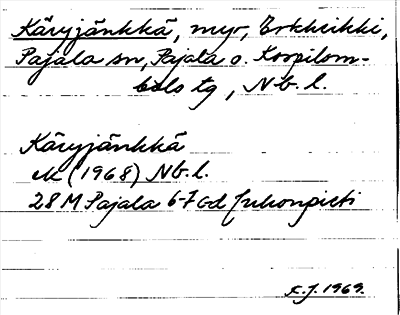 Käryjänkkä, myr, Erkheikki,
Pajala sn, Pajala o. Korpilom-
bolo tg, Nb. l.
Käryjänkkä
ek (1968) Nb. l.
28 M Pajala 6-7 cd Juhonpieti
K.J. 1969.